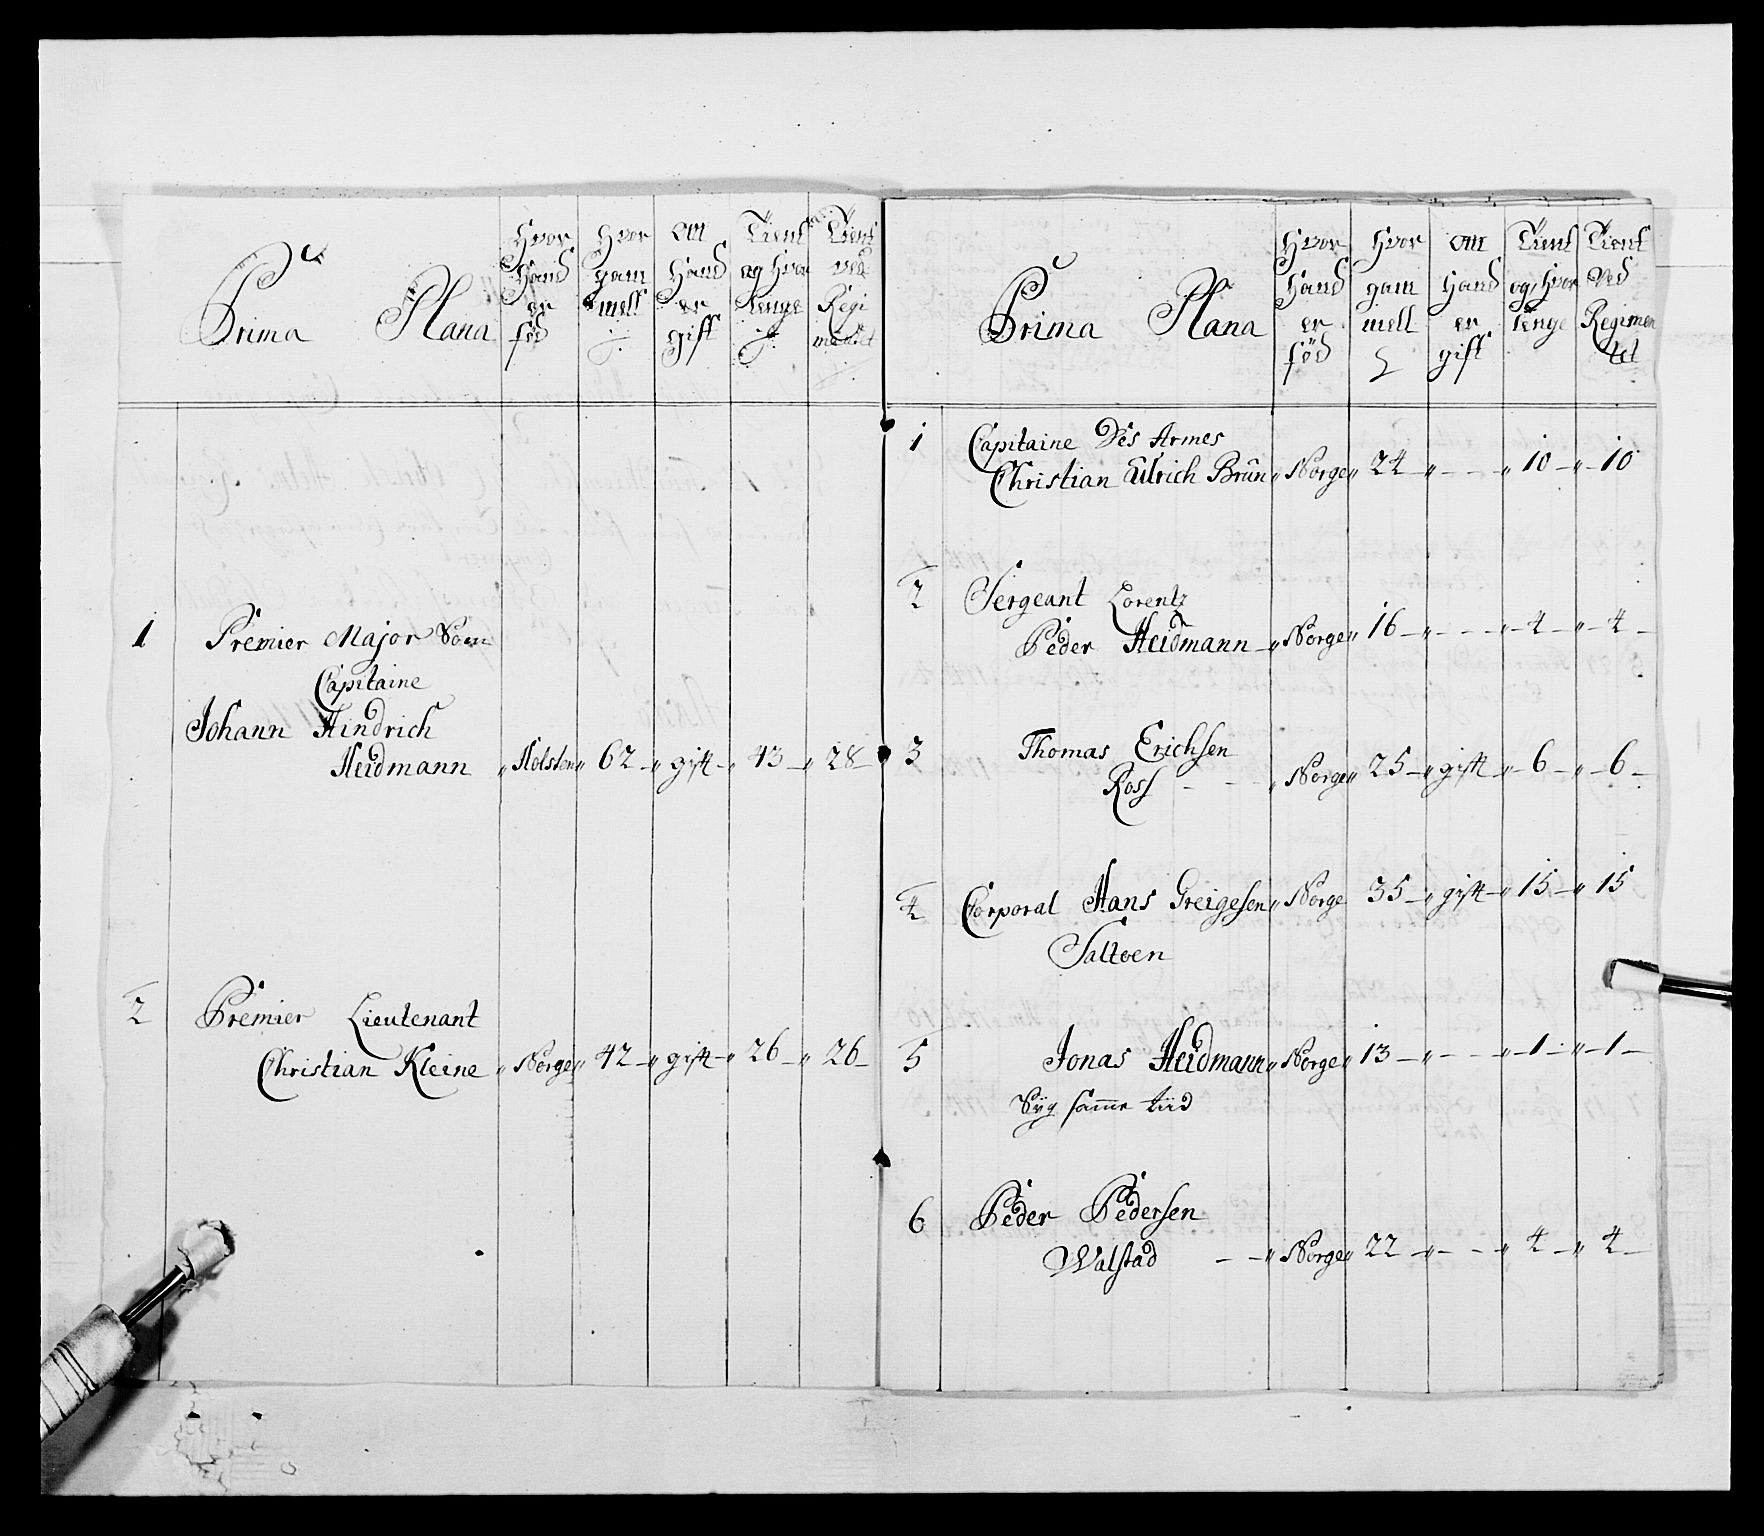 Prima Plana
Hvor Hand er föd
Hvor gam mell
om Hand er gift
Tient og Hvor lenge
Tient ved Regi mentet
1 Premier Major Som
Capitaine
Johann Hindrich
Heidmann " Holsten " 62 " gift " 43 " 28
2 Premier Lieutenant
Christian Kleine " Norge " 42 " gift " 26 " 26
Prima Plana
Hvor Hand er föd
Hvor gam mell
om Hand er gift
Tient og Hvor lenge
Tient Ved Regimen tet
1 Capitaine Des Armes
Christian Ulrich Brün " Norge " 24 " - " 10 " 10
2 Sergeant Lorentz
Peder Heidmann " Norge " 16 " - " 4 " 4
3 Thomas Erichsen
Ross " Norge " 25 " gift " 6 " 6
4 Corporal Hans Greigesen " Norge 35 " gift " 15 " 15
Saltoen
5 Jonas Heidmann " Norge " 13 " - " 1 " 1
Syg samme tiid
6 Peder Pedersen
Walstad " Norge " 22 " - " 4 " 4